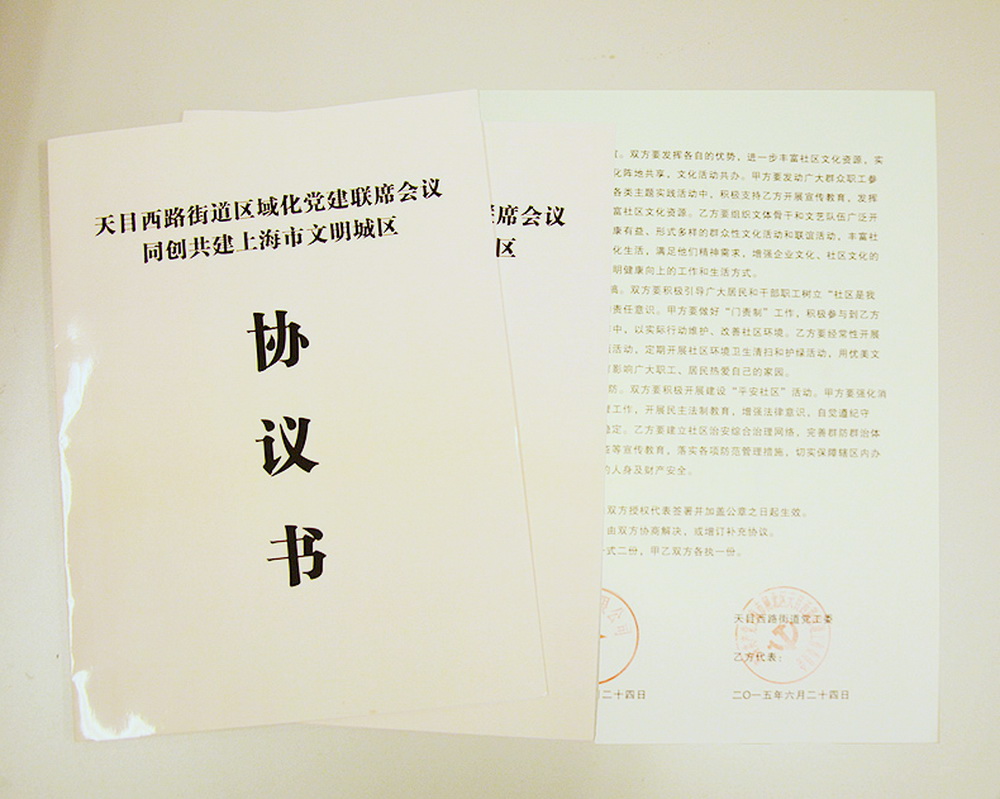 天目西路街道区域化党建联席会议
同创共建上海市文明城区
协
议
书
席会议
区
。双方要发挥各自的优势，进一步丰富社区文化资源，实
化阵地共享，文化活动共办。甲方要发动广大群众职工参
各类主题实践活动中，积极支持乙方开展宣传教育，发挥
富社区文化资源。乙方要组织文体骨干和文艺队伍广泛开
康有益、形式多样的群众性文化活动和联谊活动，丰富社
化生活，满足他们精神需求，增强企业文化、社区文化的
明健康向上的工作和生活方式。
。双方要积极引导广大居民和干部职工树立“社区是我
责任意识。甲方要做好“门责制”工作，积极参与到乙方
中，以实际行动维护、改善社区环境。乙方要经常性开展
活动，定期开展社区环境卫生清扫和护绿活动，用优美文
影响广大职工、居民热爱自己的家园。
防。双方要积极开展建设“平安社区”活动。甲方要强化消
工作，开展民主法制教育，增强法律意识，自觉遵纪守
稳定。乙方要建立社区治安综合治理网络，完善群防群治体
等宣传教育，落实各项防范管理措施，切实保障辖区内办
的人身及财产安全。
双方授权代表签署并加盖公章之日起生效。
由双方协商解决，或增订补充协议。
式二份，甲乙双方各执一份。
天目西路街道党工委
乙方代表：
二十四日
二〇一五年六月二十四日